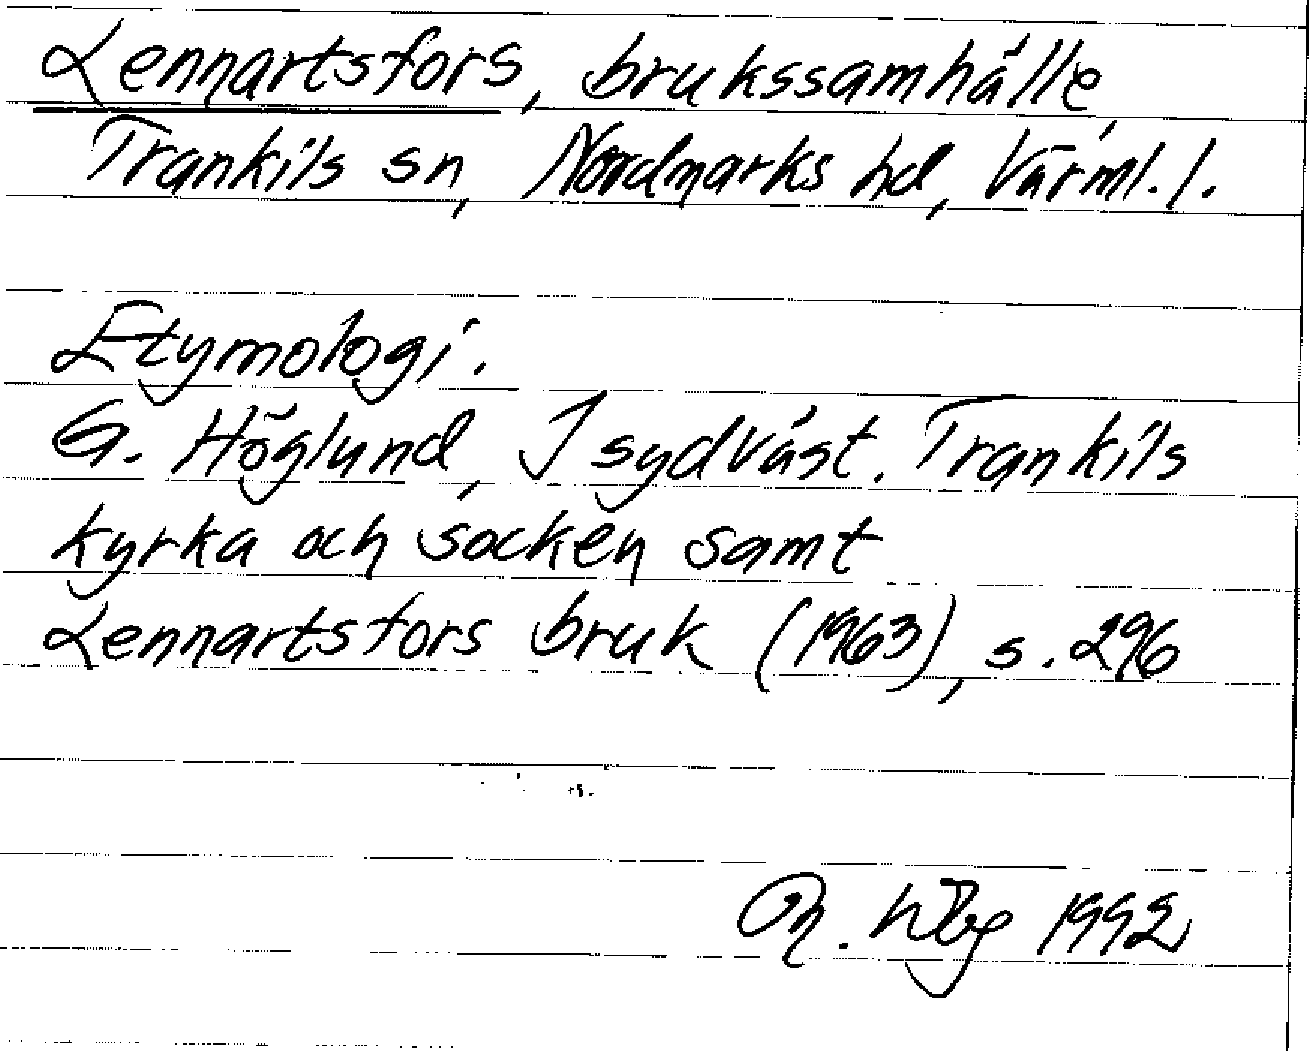 Lennartsfors, brukssamhälle,
Trankils sn, Nordmarks hd, Värml. l.
Etymologi.
G. Höglund, I sydväst. Trankils
kyrka och socken samt
Lennartsfors bruk (1963), s. 296
1992